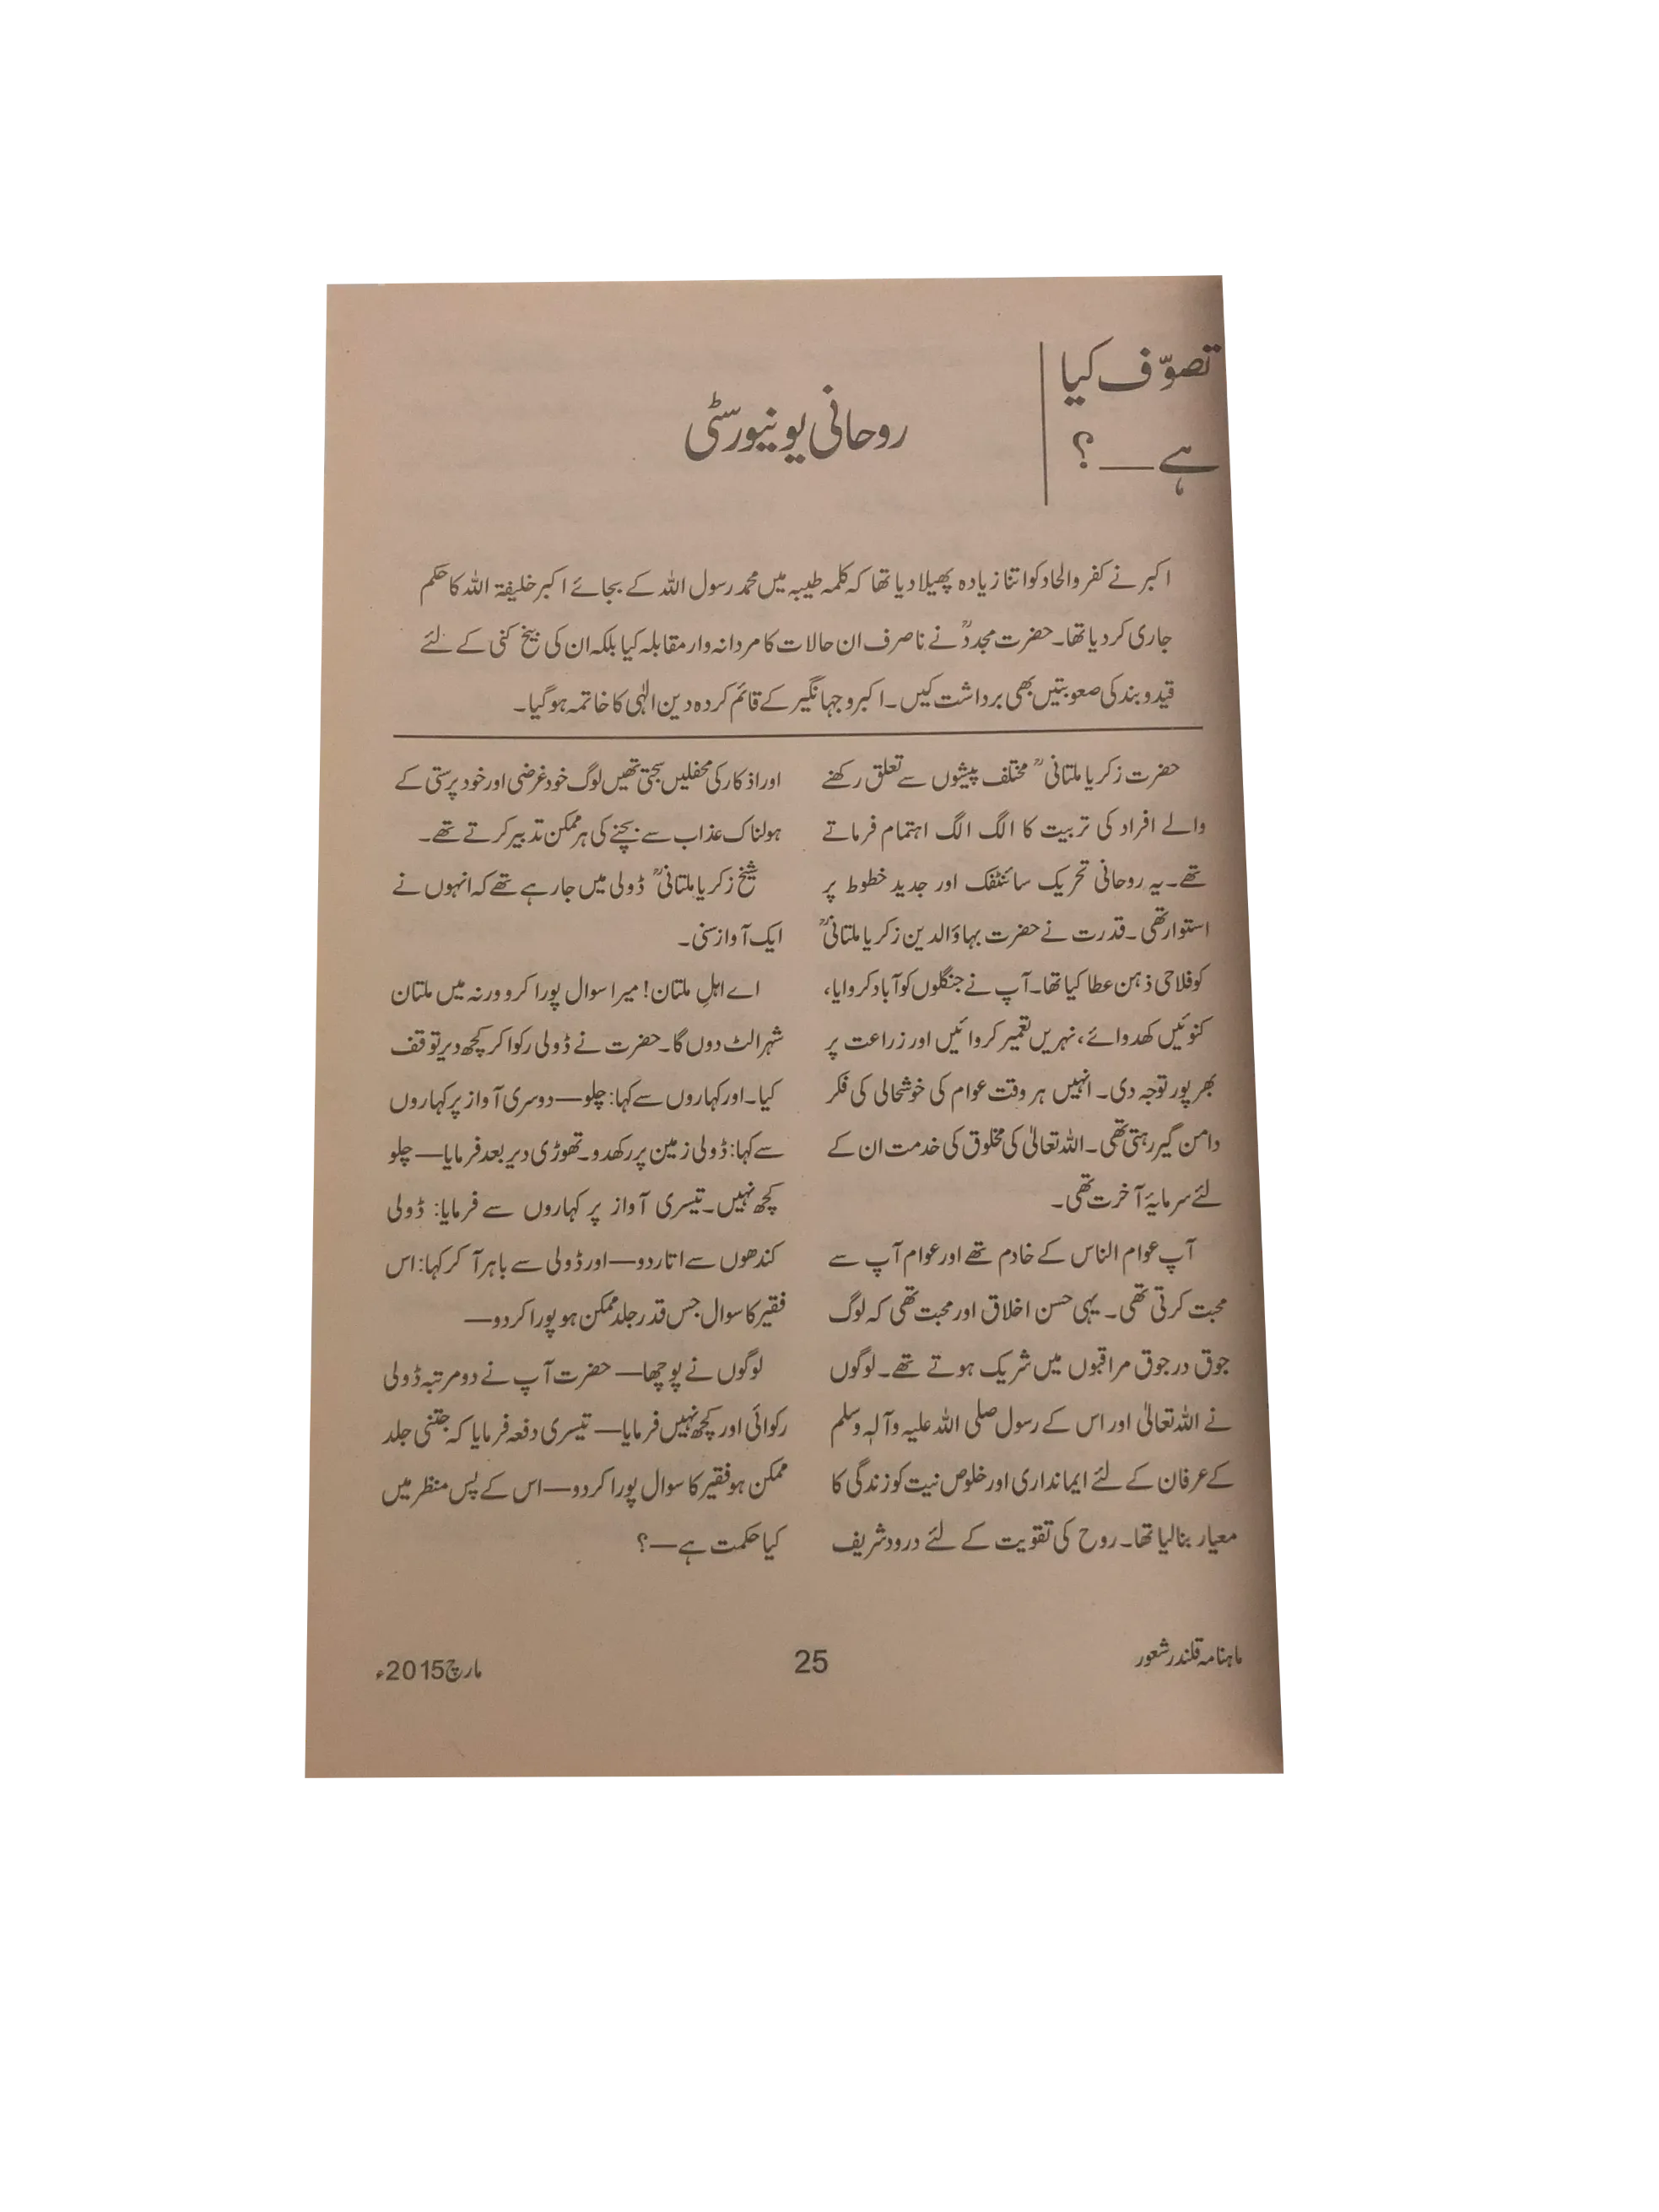 تصوّف کیا
ہے ــــ ؟
روحانی یونیورسٹی
اکبر نے کفر و الحاد کو اتنا زیادہ پھیلا دیا تھا کہ کلمہ طیبہ میں محمد رسول اللہ کے بجائے اکبر خلیفۃ اللہ کا حکم
جاری کر دیا تھا۔ حضرت مجددؒ نے نا صرف ان حالات کا مردانہ وار مقابلہ کیا بلکہ ان کی بیخ کنی کے لئے
قید و بند کی صعوبتیں بھی برداشت کیں۔ اکبر و جہانگیر کے قائم کردہ دین الٰہی کا خاتمہ ہو گیا۔
حضرت زکریا ملتانیؒ مختلف پیشوں سے تعلق رکھنے
والے افراد کی تربیت کا الگ الگ اہتمام فرماتے
تھے۔ یہ روحانی تحریک سائنٹفک اور جدید خطوط پر
استوار تھی۔ قدرت نے حضرت بہاؤالدین زکریا ملتانیؒ
کو فلاحی ذہن عطا کیا تھا۔ آپ نے جنگلوں کو آباد کروایا،
کنوئیں کھدوائے، نہریں تعمیر کروائیں اور زراعت پر
بھرپور توجہ دی۔ انہیں ہر وقت عوام کی خوشحالی کی فکر
دامن گیر رہتی تھی۔ اللہ تعالیٰ کی مخلوق کی خدمت ان کے
لئے سرمایۂ آخرت تھی۔
آپ عوام الناس کے خادم تھے اور عوام آپ سے
محبت کرتی تھی۔ یہی حسن اخلاق اور محبت تھی کہ لوگ
جوق در جوق مراقبوں میں شریک ہوتے تھے۔ لوگوں
نے اللہ تعالیٰ اور اس کے رسول صلی اللہ علیہ وآلہٖ وسلم
کے عرفان کے لئے ایمانداری اور خلوص نیت کو زندگی کا
معیار بنا لیا تھا۔ روح کی تقویت کے لئے درود شریف
اور اذکار کی محفلیں سجتی تھیں لوگ خود غرضی اور خود پرستی کے
ہولناک عذاب سے بچنے کی ہر ممکن تدبیر کرتے تھے۔
شیخ زکریا ملتانیؒ ڈولی میں جا رہے تھے کہ انہوں نے
ایک آواز سنی۔
اے اہلِ ملتان! میرا سوال پورا کرو ورنہ میں ملتان
شہر الٹ دوں گا۔ حضرت نے ڈولی رکوا کر کچھ دیر توقف
کیا۔ اور کہاروں سے کہا: چلو — دوسری آواز پر کہاروں
سے کہا: ڈولی زمین پر رکھدو۔ تھوڑی دیر بعد فرمایا — چلو
کچھ نہیں۔ تیسری آواز پر کہاروں سے فرمایا: ڈولی
کندھوں سے اتار دو — اور ڈولی سے باہر آ کر کہا: اس
فقیر کا سوال جس قدر جلد ممکن ہو پورا کر دو —
لوگوں نے پوچھا — حضرت آپ نے دو مرتبہ ڈولی
رکوائی اور کچھ نہیں فرمایا — تیسری دفعہ فرمایا کہ جتنی جلد
ممکن ہو فقیر کا سوال پورا کر دو — اس کے پس منظر میں
کیا حکمت ہے — ؟
ماہنامہ قلندر شعور
25
مارچ 2015ء